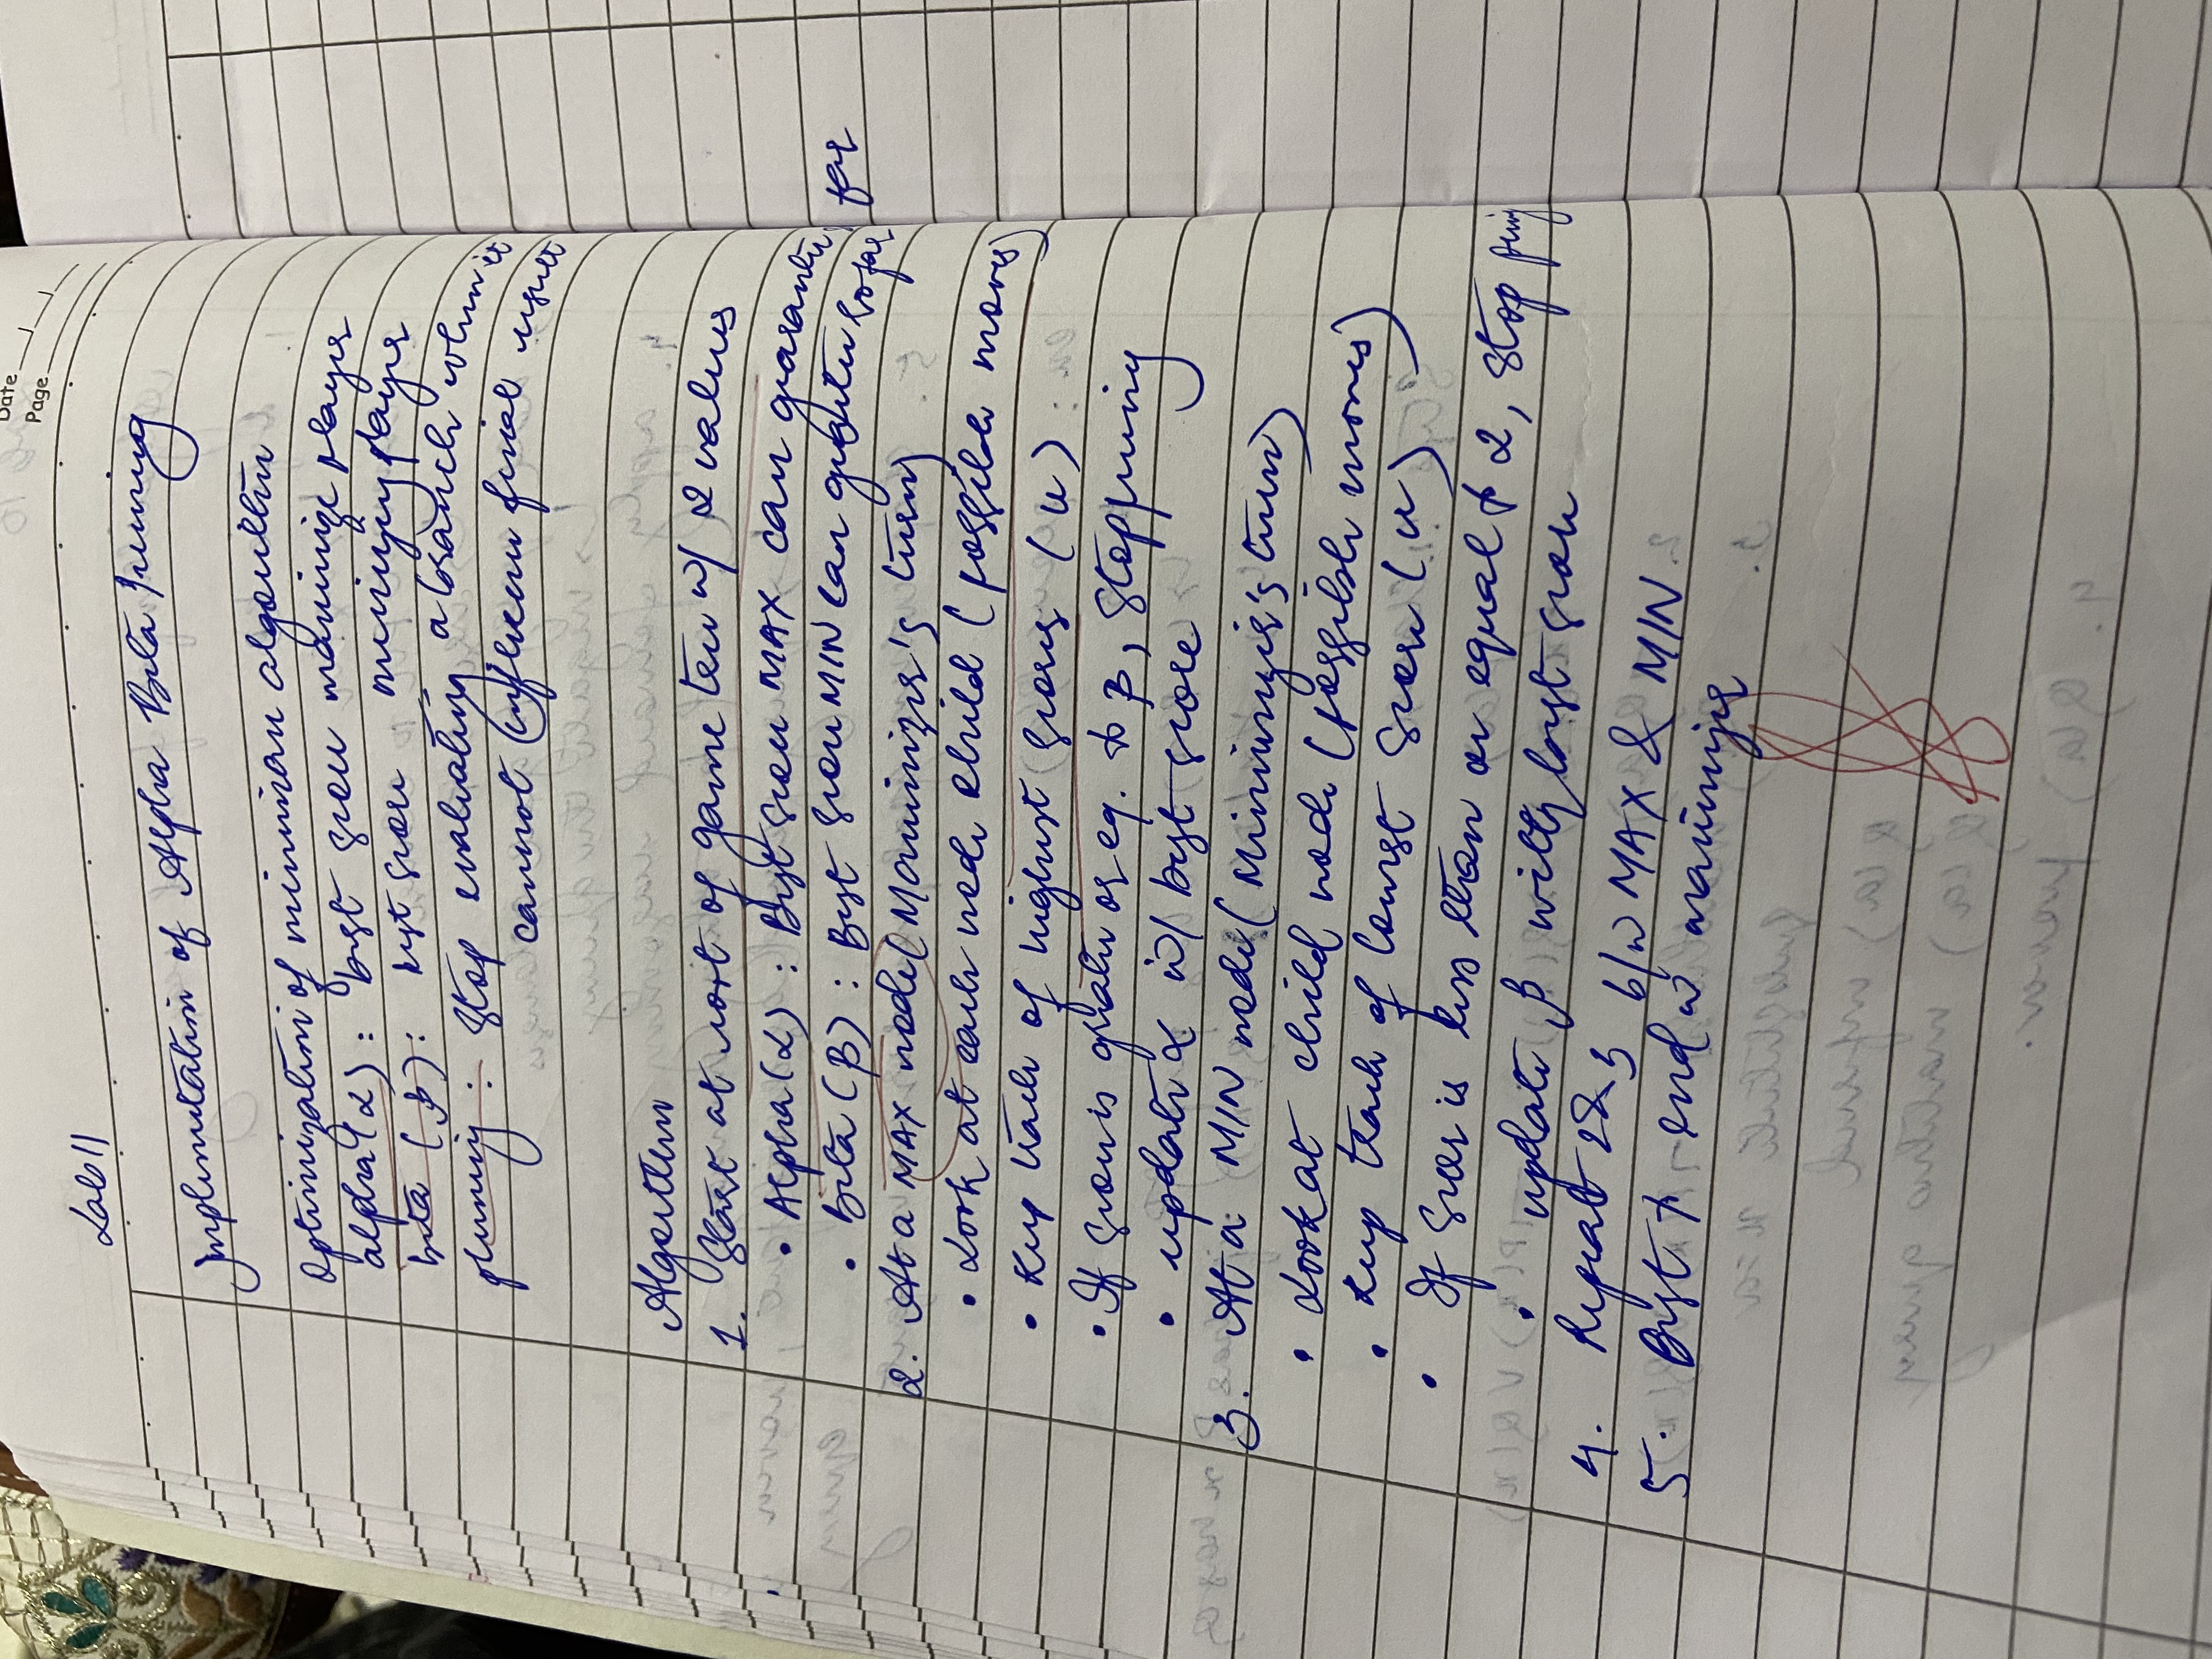 Date
Page
Lab 11
Implementation of Alpha Beta Pruning
Optimization of minimax algorithm
alpha (α) : best score maximize player
beta (β) : best score minimizing player
pluning : Stop evaluating a branch when it
cannot influence final result
Algorithm
1. Start at root of game tree w/ 2 values
• Alpha (α) : Best score MAX can guarantee so far
• beta (β) : Best score MIN can guarantee so far
2. At a MAX node (Maximizer's turn)
• Look at each node child (possible moves)
• Keep track of highest scores (v)
• If score is greater or eq. to β, stop pruning
• update α w/ best score
3. At a MIN node (Minimizer's turn)
• Look at child node (possible moves)
• Keep track of lowest score (v)
• If score is less than or equal to α, stop pruning
• update β with best score
4. Repeat 2 & 3 b/w MAX & MIN
5. Best to end w maximizer